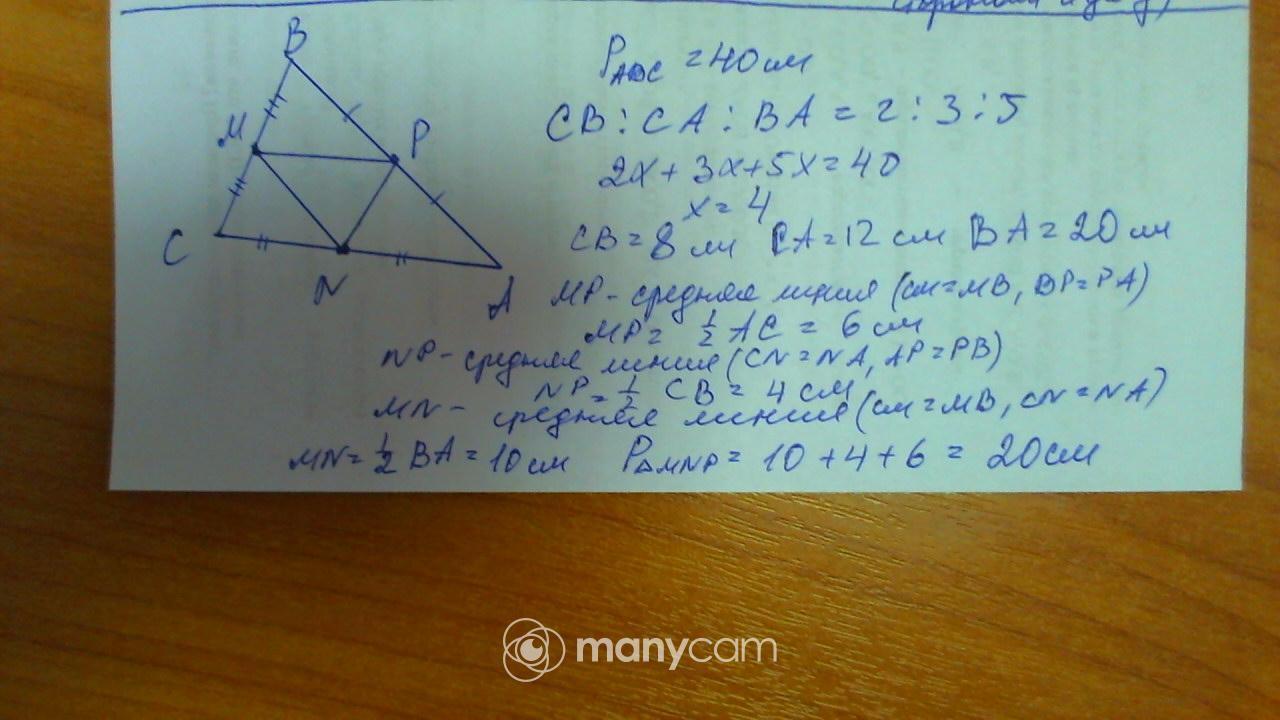 B
M
P
C
N
A
P ABC = 40 см
CB : CA : BA = 2 : 3 : 5
2x + 3x + 5x = 40
x = 4
CB = 8 см CA = 12 см BA = 20 см
MP - средняя линия (CM = MB, BP = PA)
MP = 1/2 AC = 6 см
NP - средняя линия (CN = NA, AP = PB)
NP = 1/2 CB = 4 см
MN - средняя линия (CM = MB, CN = NA)
MN = 1/2 BA = 10 см P△MNP = 10 + 4 + 6 = 20 см
manycam